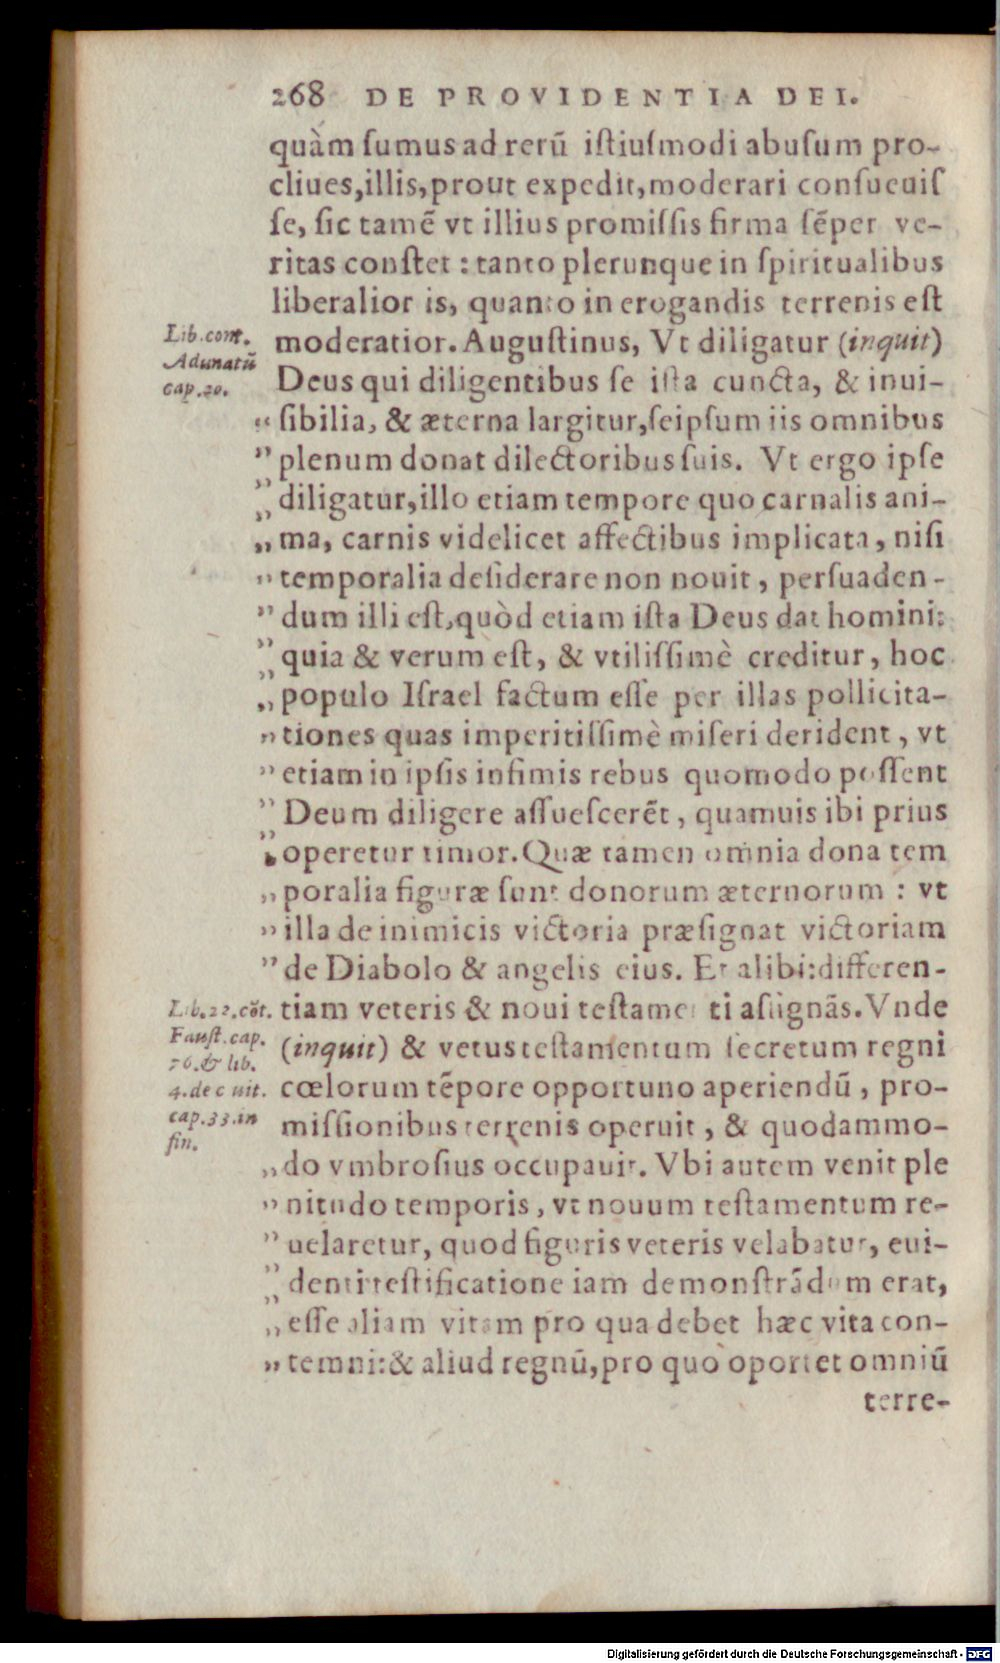 268 DE PROVIDENTIA DEI.
quàm ſumus ad rerũ iſtiuſmodi abuſum pro-
cliues, illis, prout expedit, moderari conſueuiſ
ſe, ſic tamẽ vt illius promiſſis firma ſẽper ve-
ritas conſtet : tanto plerunque in ſpiritualibus
liberalior is, quanto in erogandis terrenis eſt
Lib. cont.
Adunatũ
cap. 20.
moderatior. Auguſtinus, Vt diligatur (inquit)
Deus qui diligentibus ſe iſta cuncta, & inui-
„ ſibilia, & æterna largitur, ſeipſum iis omnibus
„ plenum donat dilectoribus ſuis. Vt ergo ipſe
„ diligatur, illo etiam tempore quo carnalis ani-
„ ma, carnis videlicet affectibus implicata, niſi
„ temporalia deſiderare non nouit, perſuaden-
„ dum illi eſt, quòd etiam iſta Deus dat homini:
„ quia & verum eſt, & vtiliſſimè creditur, hoc
„ populo Iſrael factum eſſe per illas pollicita-
„ tiones quas imperitiſſimè miſeri derident, vt
„ etiam in ipſis infimis rebus quomodo poſſent
„ Deum diligere aſſueſcerẽt, quamuis ibi prius
„ operetur timor. Quæ tamen omnia dona tem
„ poralia figuræ ſunt donorum æternorum : vt
„ illa de inimicis victoria præſignat victoriam
„ de Diabolo & angelis eius. Et alibi: differen-
Lib. 22. cõt.
Fauſt. cap.
76. & lib.
4. de c uit.
cap. 33. in
fin.
tiam veteris & noui teſtame ti aſſignãs. Vnde
(inquit) & vetus teſtamentum ſecretum regni
cœlorum tẽpore opportuno aperiendũ, pro-
miſſionibus terrenis operuit, & quodammo-
„ do vmbroſius occupauit. Vbi autem venit ple
„ nitudo temporis, vt nouum teſtamentum re-
„ uelaretur, quod figuris veteris velabatur, eui-
„ denti teſtificatione iam demonſtrãdum erat,
„ eſſe aliam vitam pro qua debet hæc vita con-
„ temni: & aliud regnũ, pro quo oportet omniũ
terre-
Digitalisierung gefördert durch die Deutsche Forschungsgemeinschaft - DFG